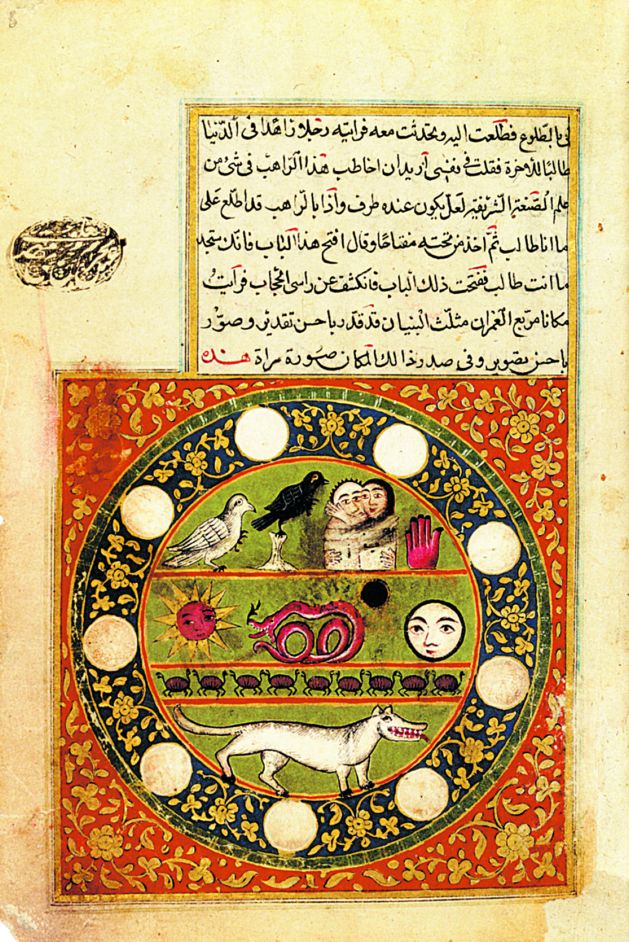 لي بالطلوع فطلعت اليه وتحدثت معه فرايته رجلا زاهدا في الدنيا
طالبا للاخرة فقلت في نفسي اريد ان اخاطب هذا الراهب في شئ من
علم الصنعة الشريفة لعل يكون عنده طرف واذا بالراهب قد اطلع على
ما انا طالب ثم اخذ من تحته مفتاحا وقال افتح هذا الباب فانك ستجد
ما انت طالب ففتحت ذلك الباب فانكشف عن راسي الحجاب فرايت
مكانا مربع الغران مثلث البنيان قد قدر باحسن تقدير وصور
باحسن تصوير وفي صدر ذالك المكان صورة مراة هذه